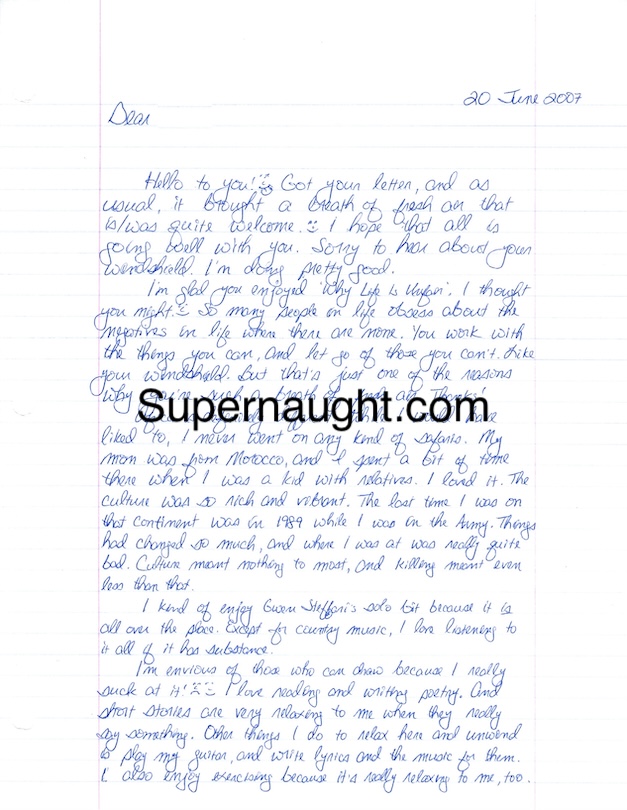 20 June 2007
Dear
Hello to you! Got your letter, and as
usual, it brought a breath of fresh air that
is/was quite welcome. I hope that all is
going well with you. Sorry to hear about your
windshield. I'm doing pretty good.
I'm glad you enjoyed 'Why Life Is Unfair'. I thought
you might. So many people in life obsess about the
negatives in life where there are none. You work with
the things you can, and let go of those you can't. Like
your windshield. But that's just one of the reasons
why you're such a breath of fresh air. Thanks!
Supernaught.com
have
liked to, I never went on any kind of safaris. My
mom was from Morocco, and I spent a bit of time
there when I was a kid with relatives. I loved it. The
culture was so rich and vibrant. The last time I was on
that continent was in 1989 while I was in the Army. Things
had changed so much, and where I was at was really quite
bad. Culture meant nothing to most, and killing meant even
less than that.
I kind of enjoy Gwen Steffani's solo bit because it is
all over the place. Except for country music, I love listening to
it all if it has substance.
I'm envious of those who can draw because I really
suck at it! I love reading and writing poetry. And
short stories are very relaxing to me when they really
say something. Other things I do to relax here and unwind
is play my guitar, and write lyrics and the music for them.
I also enjoy exercising because it's really relaxing to me, too.